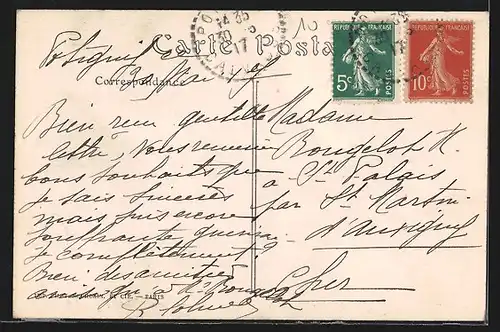 Carte Postale
Correspondance
RÉPUBLIQUE FRANÇAISE
5c
POSTES
RÉPUBLIQUE FRANÇAISE
10c
POSTES
Potigny
Bien reçu gentille
lettre, vous remercie
bons souhaits que
je sais sincères
mais suis encore
souffrante
je complètement ?
Bien des amitiés
ainsi qu'à Mr Bougelot
Madame
Bougelot H.
à St Palais
par St Martin
d'Auxigny
Cher
ET CIE. — PARIS